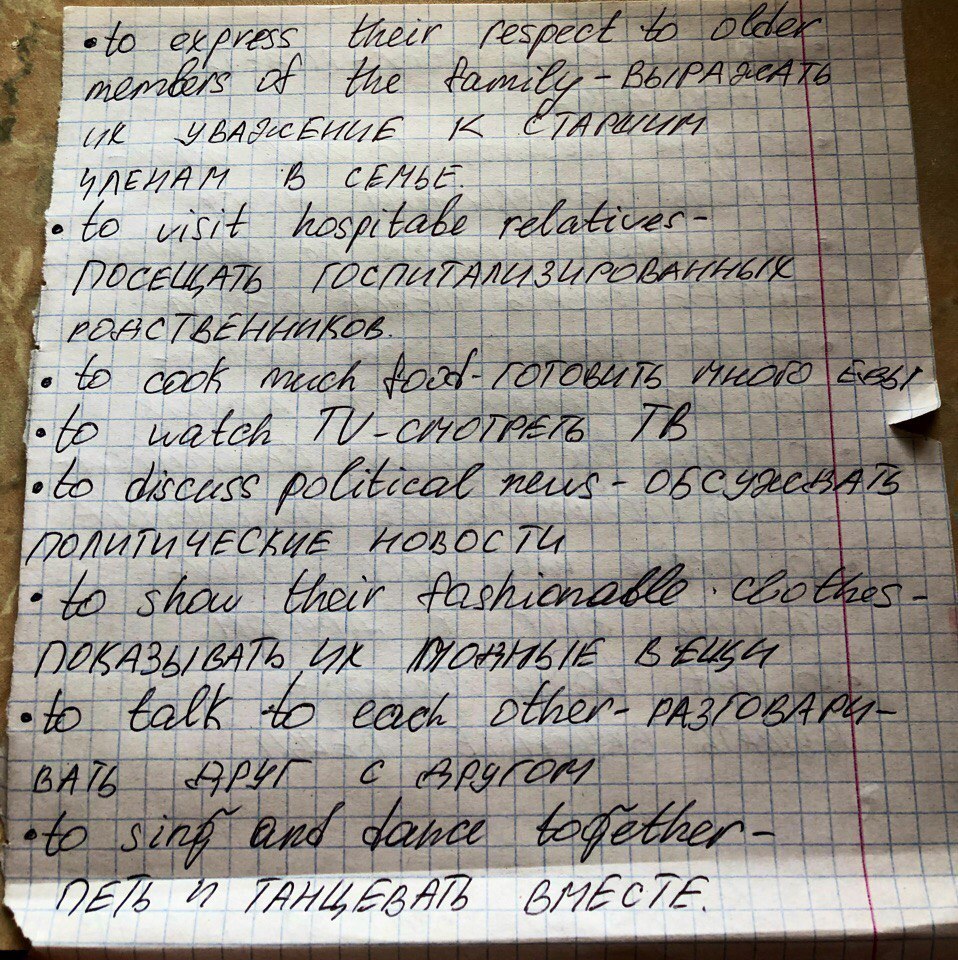 • to express their respect to older
members of the family - ВЫРАЖАТЬ
ИХ УВАЖЕНИЕ К СТАРШИМ
ЧЛЕНАМ В СЕМЬЕ.
• to visit hospitabe relatives -
ПОСЕЩАТЬ ГОСПИТАЛИЗИРОВАННЫХ
РОДСТВЕННИКОВ.
• to cook much food - ГОТОВИТЬ МНОГО ЕДЫ
• to watch TV - СМОТРЕТЬ ТВ
• to discuss political news - ОБСУЖДВАТЬ
ПОЛИТИЧЕСКИЕ НОВОСТИ
• to show their fashionable clothes -
ПОКАЗЫВАТЬ ИХ МОДНЫЕ ВЕЩИ
• to talk to each other - РАЗГОВАРИ-
ВАТЬ ДРУГ С ДРУГОМ
• to sing and dance together -
ПЕТЬ И ТАНЦЕВАТЬ ВМЕСТЕ.